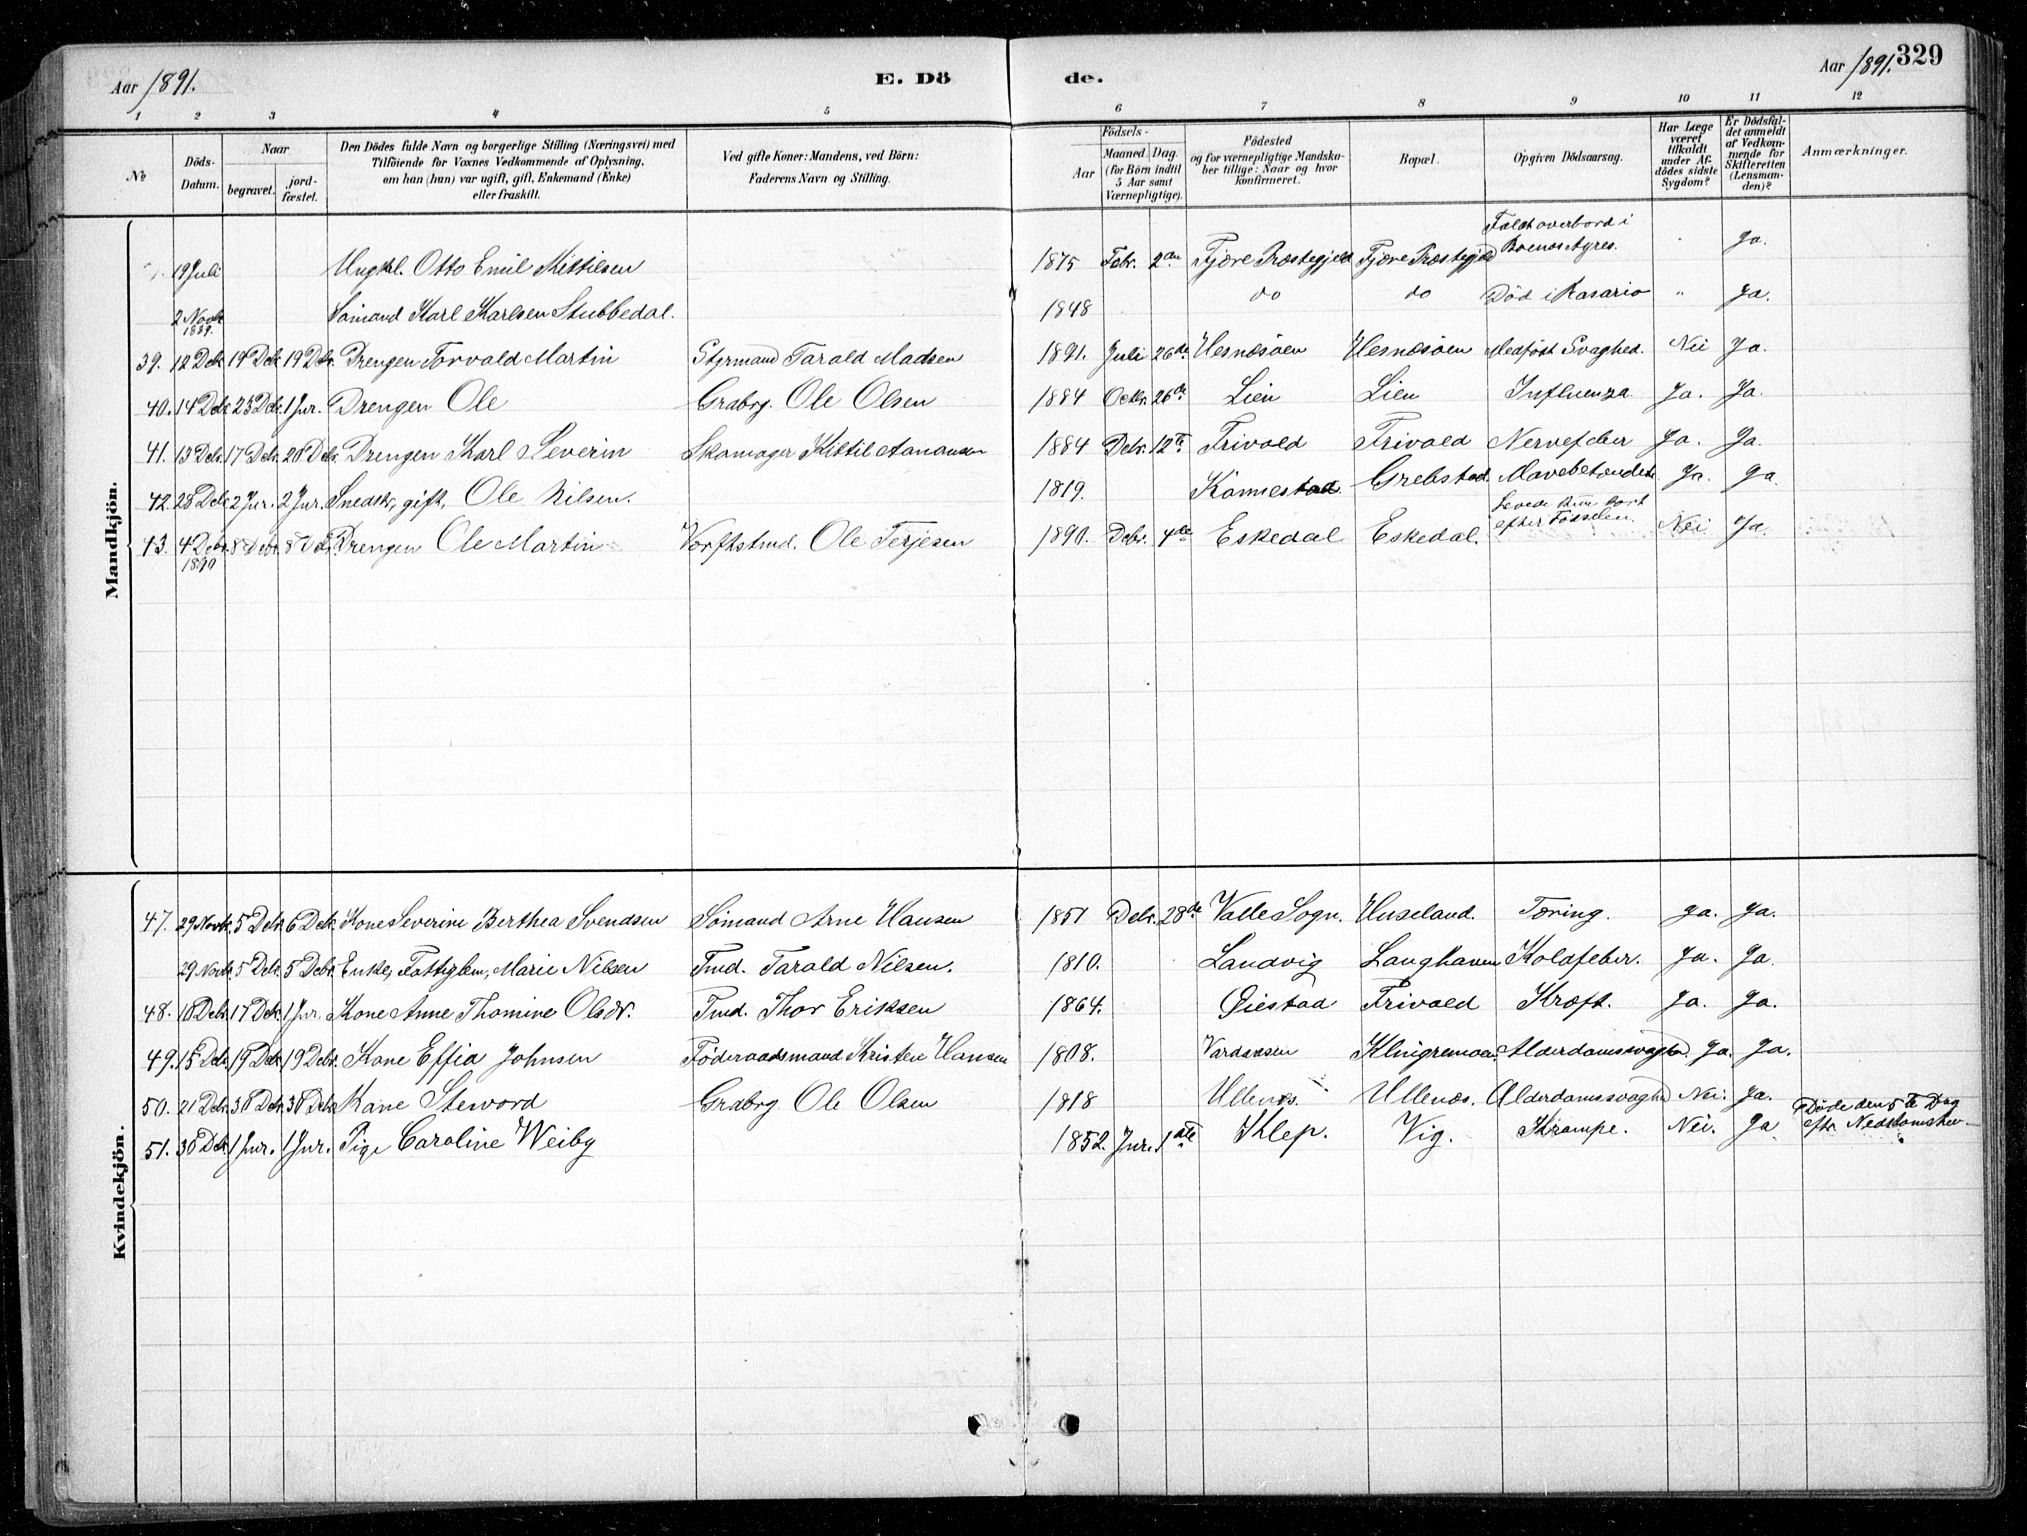 Aar 1891.
E. Döde.
Aar 1891.
329
1 2 3 4 5 6 7 8 9 10 11 12
No
Döds-Datum.
Naar
begravet.
jord-fæstet.
Den Dödes fulde Navn og borgerlige Stilling (Næringsvei) med
Tilföiende for Voxnes Vedkommende af Oplysning,
om han (hun) var ugift, gift, Enkemand (Enke)
eller fraskilt.
Ved gifte Koner: Mandens, ved Börn:
Faderens Navn og Stilling.
Födsels-
Aar
Maaned. Dag.
(for Börn indtil
5 Aar samt
Værnepligtige).
Födested
og for værnepligtige Mandska-
ber tillige: Naar og hvor
konfirmeret.
Bopæl.
Opgiven Dödsaarsag.
Har Læge
været
tilkaldt
under Af-
dödes sidste
Sygdom?
Er Dödsfal-
det anmeldt
af Vedkom-
mende for
Skifteretten
(Lensman-
den)?
Anmærkninger.
Mandkjön.
19 Juli Ungkl. Otto Emil Kittilsen 1875 Febr. 2den Fjære Præstegjeld Fjære Præstegjeld Faldt overbord i Buenos Ayres. " Ja.
2 Novbr 1889. Sømand Karl Karlsen Stubbedal. 1848 do do Død i Rosario " Ja.
39. 12 Debr 19 Debr 19 Debr. Drengen Torvald Martin Styrmand Tarald Madsen 1891. Juli 26de Hesnæsøen Hesnæsøen Medfødt Svaghed. Nei Ja.
40. 14 Debr 23 Debr. 1 Jnr. Drengen Ole Grdbrg. Ole Olsen 1884 Octbr. 26de Lien Lien Influenza Ja. Ja.
41. 13 Debr. 17 Debr. 20 Debr. Drengen Karl Severin Skomager Kittil Aanonsen 1884 Debr. 12te Frivold Frivold Nervefeber Ja. Ja.
42. 28 Debr 2 Jnr. 2 Jnr. Snedkr, gift, Ole Nilsen. 1819. Kannestad Grebstad. Mavebetændelse Ja. Ja.
43. 4 Debr. 1890 8 Debr. 8 Debr. Drengen Ole Martin Værftstmd. Ole Terjesen 1890. Debr. 4de Eskedal Eskedal. Levede kun kort efter Fødselen. Nei Ja.
Kvindekjön.
47. 29 Novbr. 5 Debr 6 Debr. Kone Severine Berthea Svendsen Sømand Arne Hansen 1851 Debr. 28de Valle Sogn. Huseland. Tæring. Ja. Ja.
29 Novbr. 5 Debr. 5 Debr. Enke, Fattiglem, Marie Nilsen Tmd. Tarald Nilsen. 1810. Landvig Langhaven Koldfeber. Ja. Ja.
48. 10 Debr. 17 Debr. 1 Jnr. Kone Anne Thomine Olsdr. Tmd. Thor Eriksen 1864. Øiestad Frivold Kræft. Ja. Ja.
49. 15 Debr. 19 Debr. 19 Debr. Kone Effia Johnsen Føderaadsmand Kristen Hansen 1808. Vardaasen Klingremoen Alderdomssvaghed. Ja. Ja.
50. 21 Debr. 30 Debr. 30 Debr. Kone Steword Grdbrg Ole Olsen 1818 Ullenæs. Ullenæs. Alderdomssvaghed Nei. Ja.
51. 30 Debr. 1 Jnr. 1 Jnr. Pige Caroline Weiby 1852. Jnr. 1ste Klep. Vig. Krampe. Nei. Ja Døde den 5te Dag eftr. Nedkomsten.